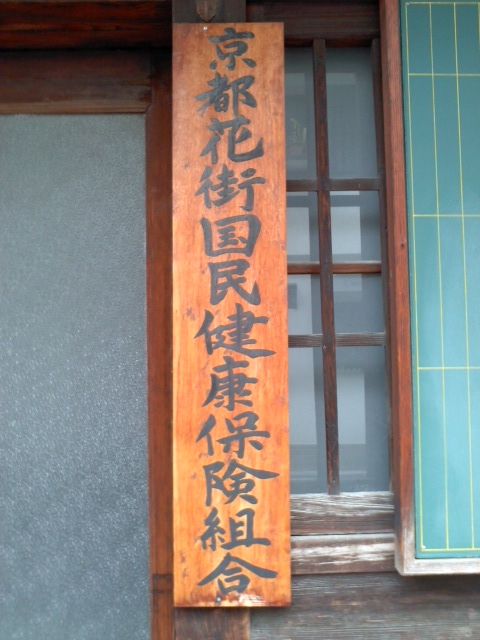 京都花街国民健康保険組合